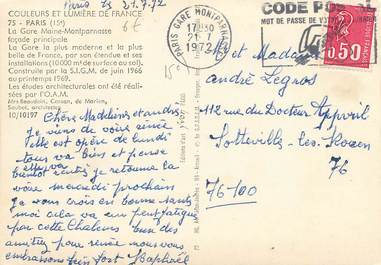 Paris 21.7.72
COULEURS ET LUMIÈRE DE FRANCE
75 - PARIS (15e)
La Gare Maine-Montparnasse
façade principale
La Gare la plus moderne et la plus
belle de France, par son étendue et ses
installations (10000 m² de surface au sol).
Construite par la S.I.G.M. de juin 1966
au printemps 1969.
Les études architecturales ont été réali-
sées par l'O.A.M.
Arts Beaudoin, Cassan, de Marien,
Saubot, architectes
10/10197
Chère Madeleine et andré
Je viens de voire renée
elle est opéré de lundi
tous va bien et pense
bientôt rentré je retourne la
voire mercredi prochain
je vous crois en bonne santé
moi cela va un peut fatigué
par cette Chaleur bien des
amitiés pour renée nous vous
embrassons bien fort Raphaël
15e
PARIS GARE MONTPARNASSE
17H30
21-7
1972
CODE POSTAL
MOT DE PASSE DE VOTRE
0,50
M et Madame
andré Legros
112 rue du Docteur
Sotteville-les-Rouen
76
76-100